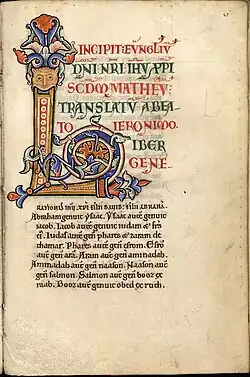 INCIPIT: EVNGLIV
DNI NRI IHV XPI
SCDM MATHEV:
TRANSLATV A BEA
TO IERONIMO.
LIBER
GENE
RATIONIS IHV XPI filii DAVID: filii ABRAHA.
Abraham genuit ysaac. Ysaac aute genuit
iacob. Iacob aute genuit iudam & frs
ei. Iudas aute gen phares & zaram de
thamar. Phares aute gen esrom. Esro
aute gen ara. Aram aute gen aminadab.
Aminadab aute gen naason. Naason aute
gen salmon. Salmon aute gen booz ex
raab. Booz aute genuit obed ex ruth.